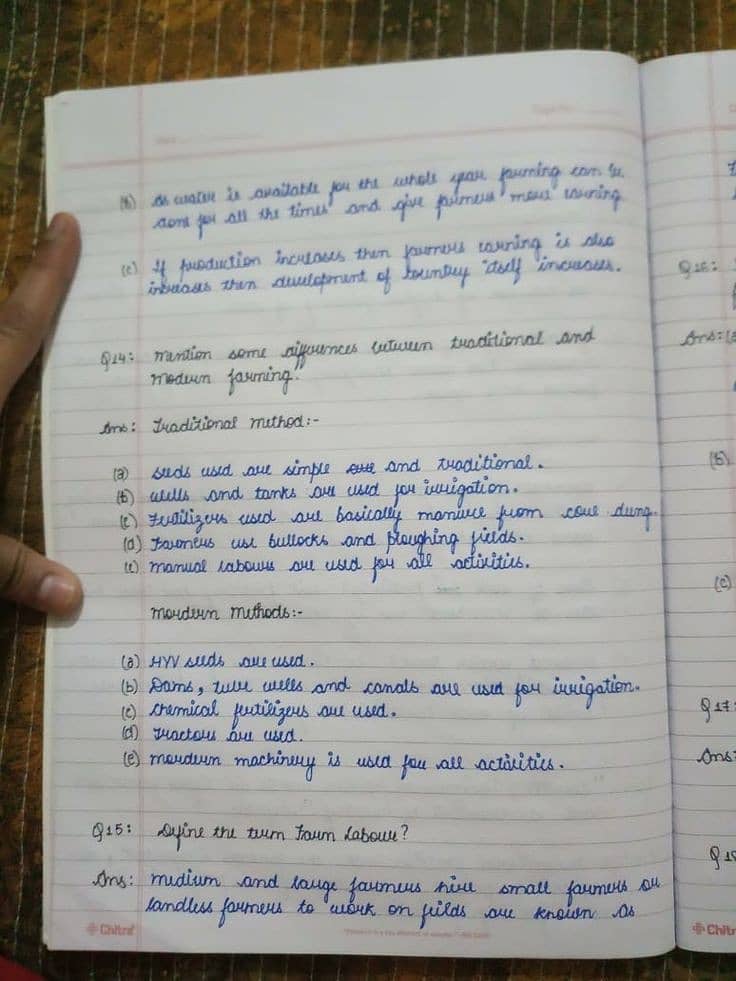 (b) As water is available for the whole year farming can be
done for all the times and give farmers' more earning
(c) If production increases then farmers earning is also
increases then development of country itself increases.
Q14: Mention some differences between traditional and
modern farming.
Ans: Traditional method:-
(a) seeds used are simple and traditional.
(b) wells and tanks are used for irrigation.
(c) Fertilizers used are basically manure from cow dung.
(d) Farmers use bullocks and ploughing fields.
(e) manual labours are used for all activities.
Mordern Methods:-
(a) HYV seeds are used.
(b) Dams, tube wells and canals are used for irrigation.
(c) chemical fertilizers are used.
(d) Tractors are used.
(e) mordern machinery is used for all activities.
Q15: Define the term Farm Labour?
Ans: medium and large farmers hire small farmers or
landless farmers to work on fields are known as
Chitra
Q16:
Ans: (a
(b)
(c)
Q17:
Ans:
Q18
Chitr